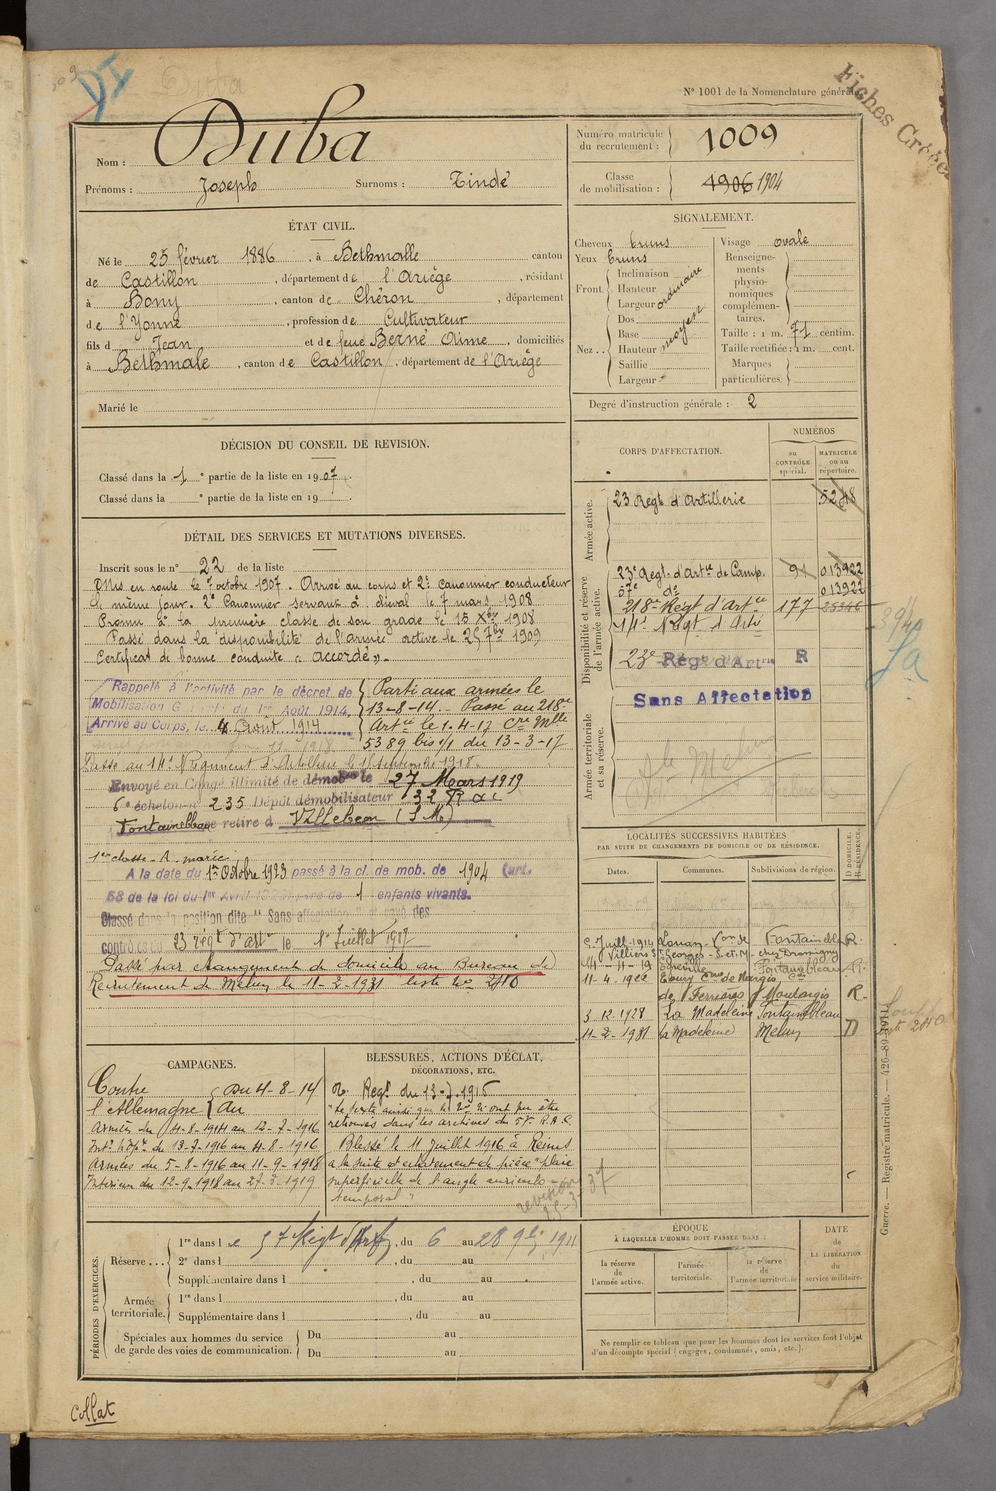 DI
Duba
N° 1001 de la Nomenclature générale
Fiches
Nom : Duba
Prénoms : Joseph Surnoms : Tindé
Numéro matricule du recrutement : 1009
Classe de mobilisation : 1906 1904
ÉTAT CIVIL.
Né le 25 février 1886, à Bethmalle canton
de Castillon, département de l'Ariège, résidant
à Bony, canton de Chéron, département
de l'Yonne, profession de Cultivateur
fils d Jean et de feue Berné Aime, domiciliés
à Bethmale, canton de Castillon, département de l'Ariège
Marié le
SIGNALEMENT.
Cheveux bruns
Yeux bruns
Front Inclinaison
Hauteur
Largeur
ordinaire
Nez Dos
Base
Hauteur
Saillie
Largeur
moyen
Visage ovale
Renseignements physionomiques complémentaires.
Taille : 1 m. 71 centim.
Taille rectifiée : 1 m. cent.
Marques particulières.
Degré d'instruction générale : 2
DÉCISION DU CONSEIL DE REVISION.
Classé dans la 1 e partie de la liste en 1907.
Classé dans la e partie de la liste en 19
DÉTAIL DES SERVICES ET MUTATIONS DIVERSES.
Inscrit sous le n° 22 de la liste
Mis en route le 7 octobre 1907. Arrivé au corps et 2e canonnier conducteur
le même jour. 2e Canonnier servant à cheval le 7 mars 1908
Promu à la première classe de son grade le 15 Xbre 1908
Passé dans la disponibilité de l'armée active le 25 7bre 1909
Certificat de bonne conduite "accordé".
Rappelé à l'activité par le décret de
Mobilisation Générale du 1er Août 1914.
Arrivé au Corps, le 4 Août 1914
Parti aux armées le
13-8-14. Passé au 218e
Artie le 1-4-17 Cre Mlle
5389 bis 1/1 du 13-3-17
Passé au 14e Régiment d'Artillerie le 1 septembre 1918.
Envoyé en Congé illimité de démob le 27 Mars 1919
6e échelon n° 235 Dépôt démobilisateur 32 R a c
Fontainebleau se retire à Villebéon (S M)
1ere classe - A. marié
A la date du 1er Octobre 1923 passé à la cl. de mob. de 1904 (art.
58 de la loi du 1er Avril 1923) père de 1 enfants vivants.
Classé dans la position dite "Sans affectation" et rayé des
contrôles du 23 régt d'artie le 1er Juillet 1927
Passé par changement de domicile au Bureau de
Recrutement de Melun le 11-2-1931 liste No 2410
CORPS D'AFFECTATION.
NUMÉROS
au CONTRÔLE spécial.
MATRICULE ou au répertoire.
Armée active.
23 Régt d'Artillerie 5248
Disponibilité et réserve de l'armée active.
23e Régt d'Artie de Camp. 91 013922
57e do 013922
218e Régt d'Artie 177
14e Régt d'Arti
23e Régt d'Artie R
Sans Affectation
Armée territoriale et sa réserve.
LOCALITÉS SUCCESSIVES HABITÉES
PAR SUITE DE CHANGEMENTS DE DOMICILE OU DE RÉSIDENCE.
Dates. Communes. Subdivisions de région. D DOMICILE. R RÉSIDENCE.
Juill-1914 Fontainebleau R
Villiers St Georges - S.et.M
14-11-19 Fontainebleau R.
11-4-1922
de Ferrières Montargis R.
3.12.1928 La Madeleine Fontainebleau
11-2-1931 la Madeleine Melun D
CAMPAGNES.
Contre l'Allemagne Du 4-8-14 Au
Armées du 4-8-1914 au 12-7-1916
Int. hôpl du 13-7-1916 au 4-8-1916
Armées du 5-8-1916 au 11-9-1918
Intérieur du 12-9-1918 au 27-3-1919
BLESSURES, ACTIONS D'ÉCLAT,
DÉCORATIONS, ETC.
O. Regt du 13-7-1916
"Le texte ainsi que le No n'ont pu être
retrouvés dans les archives du 57e R.A.C.
Blessé le 11 juillet 1916 à Reims
à la suite d'éclatement de pièce "plaie
superficielle de l'angle
revision
PÉRIODES D'EXERCICES.
Réserve 1re dans le 57 Régt d'Arty, du 6 au 28 9bre 1911
2e dans l , du au
Supplémentaire dans l , du au
Armée territoriale. 1re dans l , du au
Supplémentaire dans l , du au
Spéciales aux hommes du service de garde des voies de communication. Du au
Du au
ÉPOQUE
À LAQUELLE L'HOMME DOIT PASSER DANS :
la réserve de l'armée active.
l'armée territoriale.
la réserve de l'armée territoriale
DATE de LA LIBÉRATION du service militaire.
Ne remplir ce tableau que pour les hommes dont les services font l'objet
d'un décompte spécial (engagés, condamnés, omis, etc.).
Guerre. — Registre matricule. —
Collat